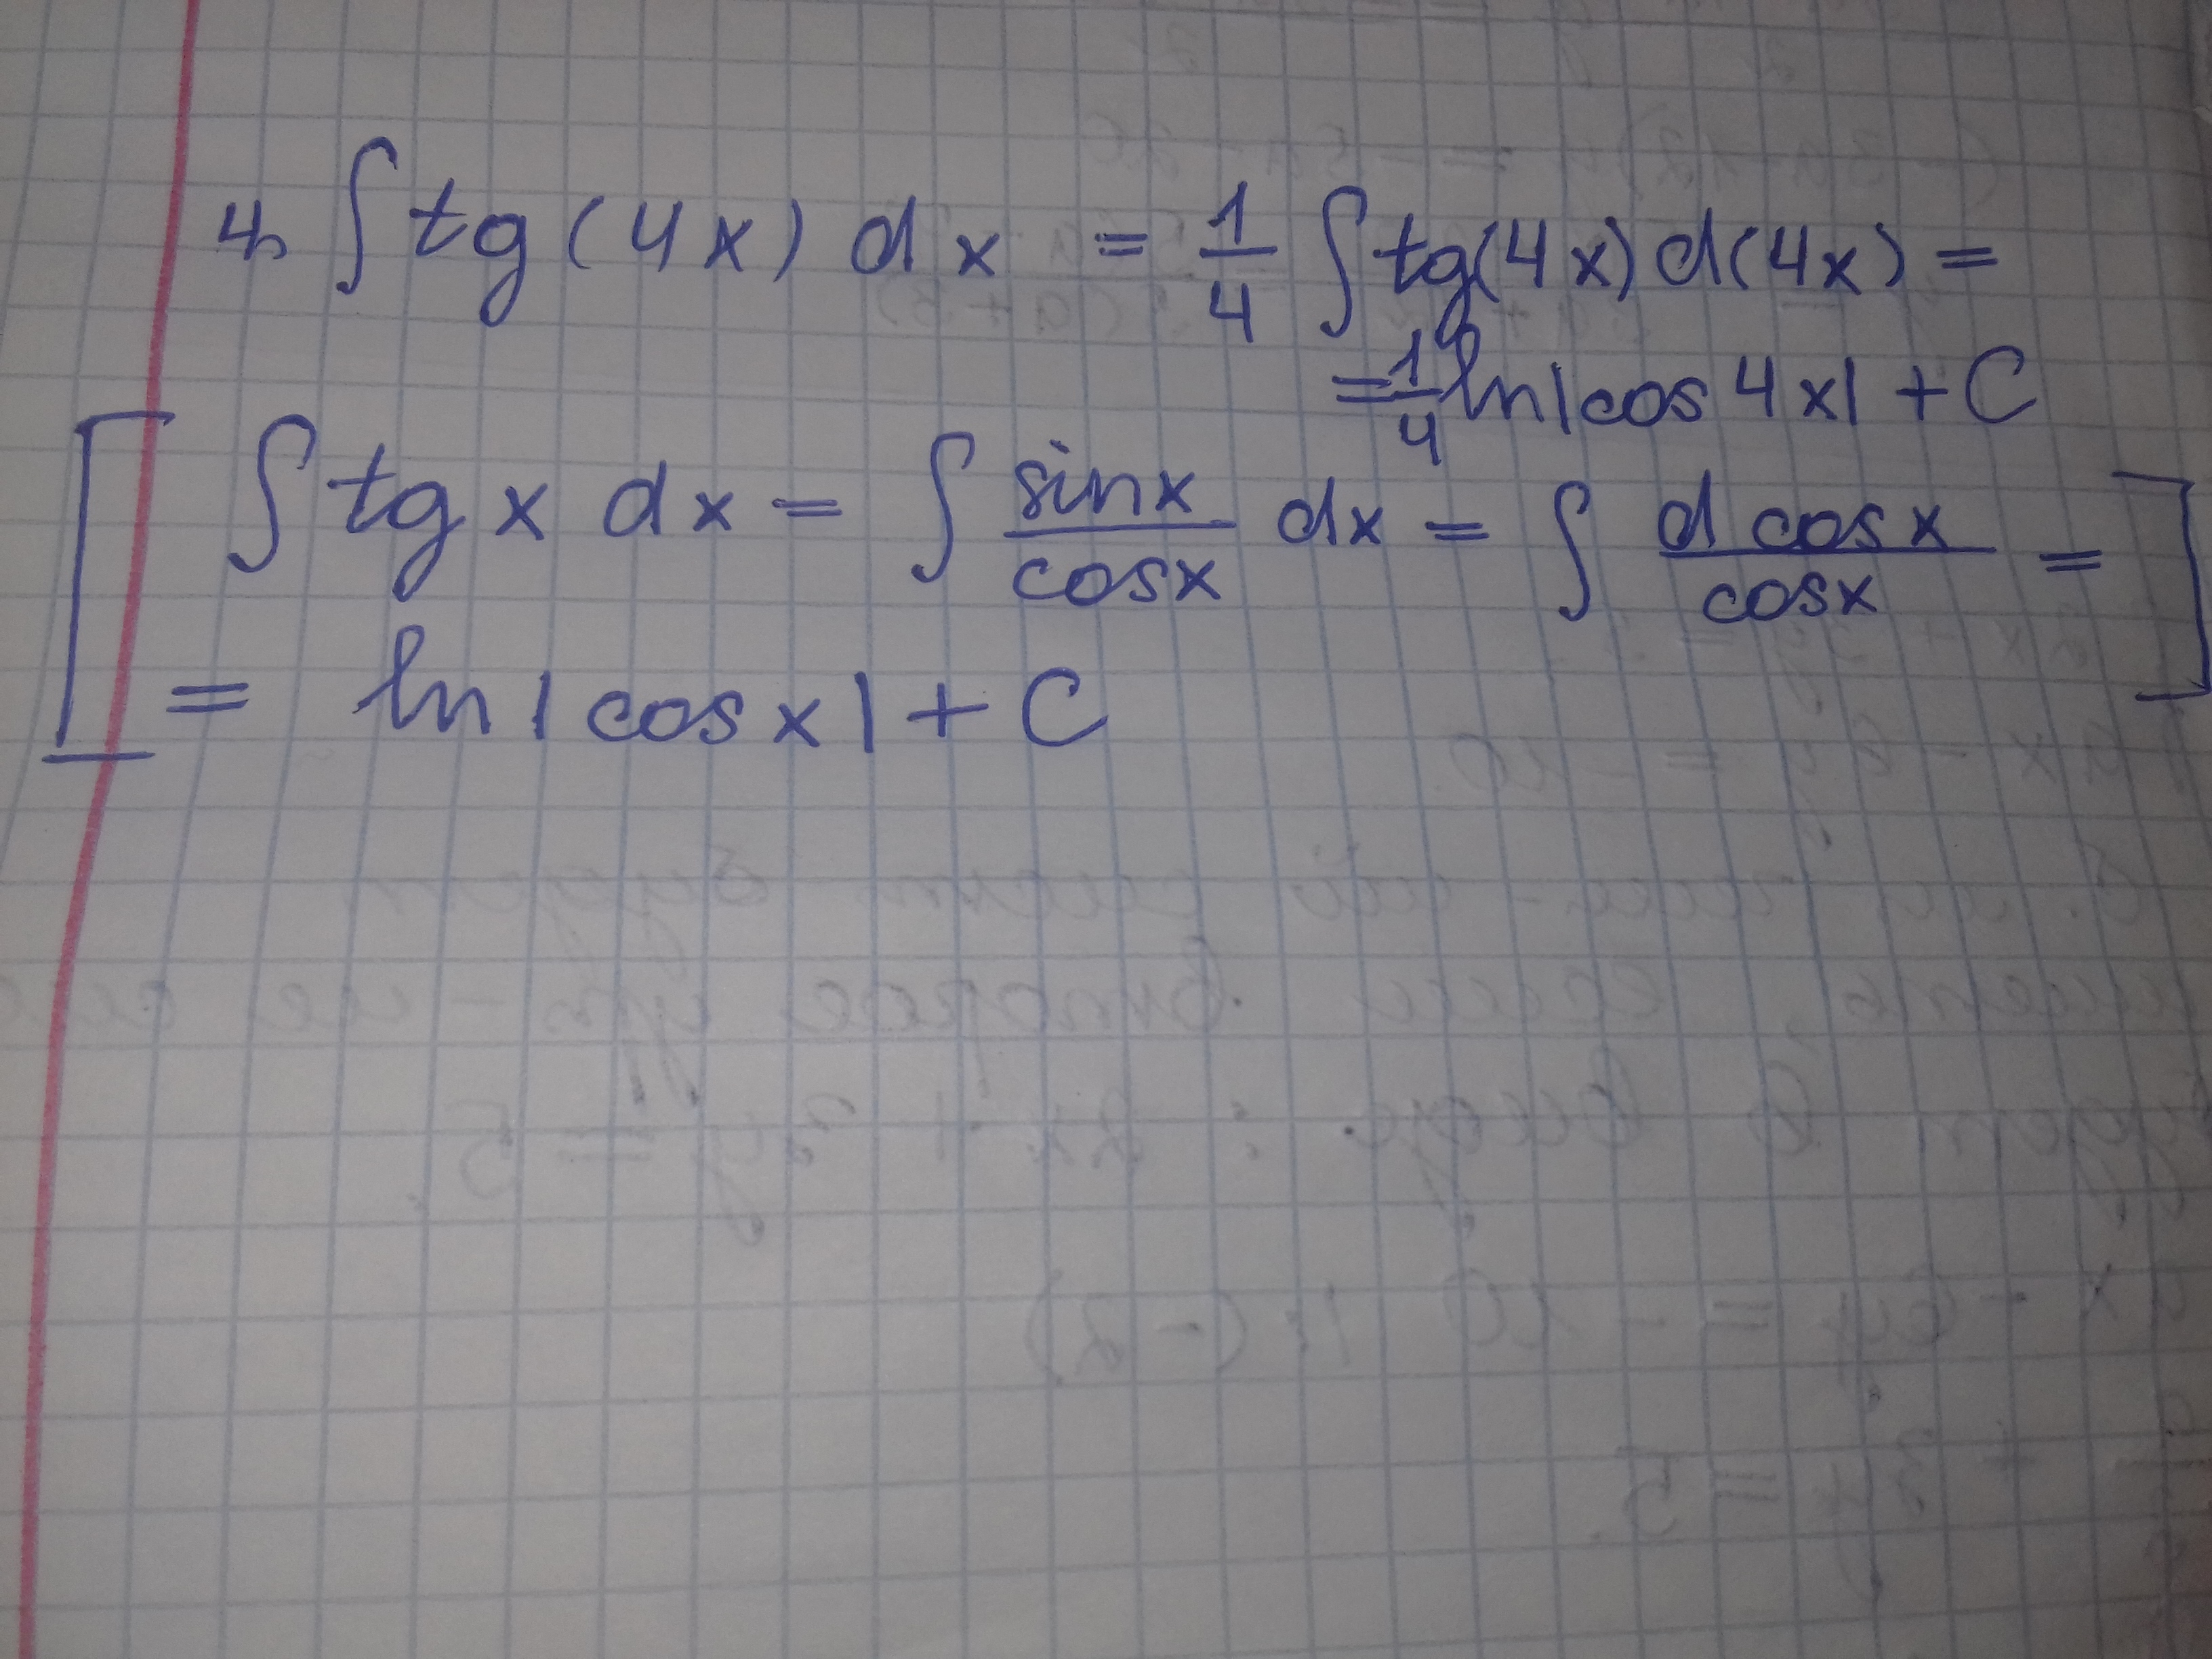 4) ∫ tg(4x) dx = 1/4 ∫ tg(4x) d(4x) =
= 1/4 ln|cos 4x| + C
[ ∫ tg x dx = ∫ sinx/cosx dx = ∫ d cosx/cosx = ]
= ln|cosx| + C